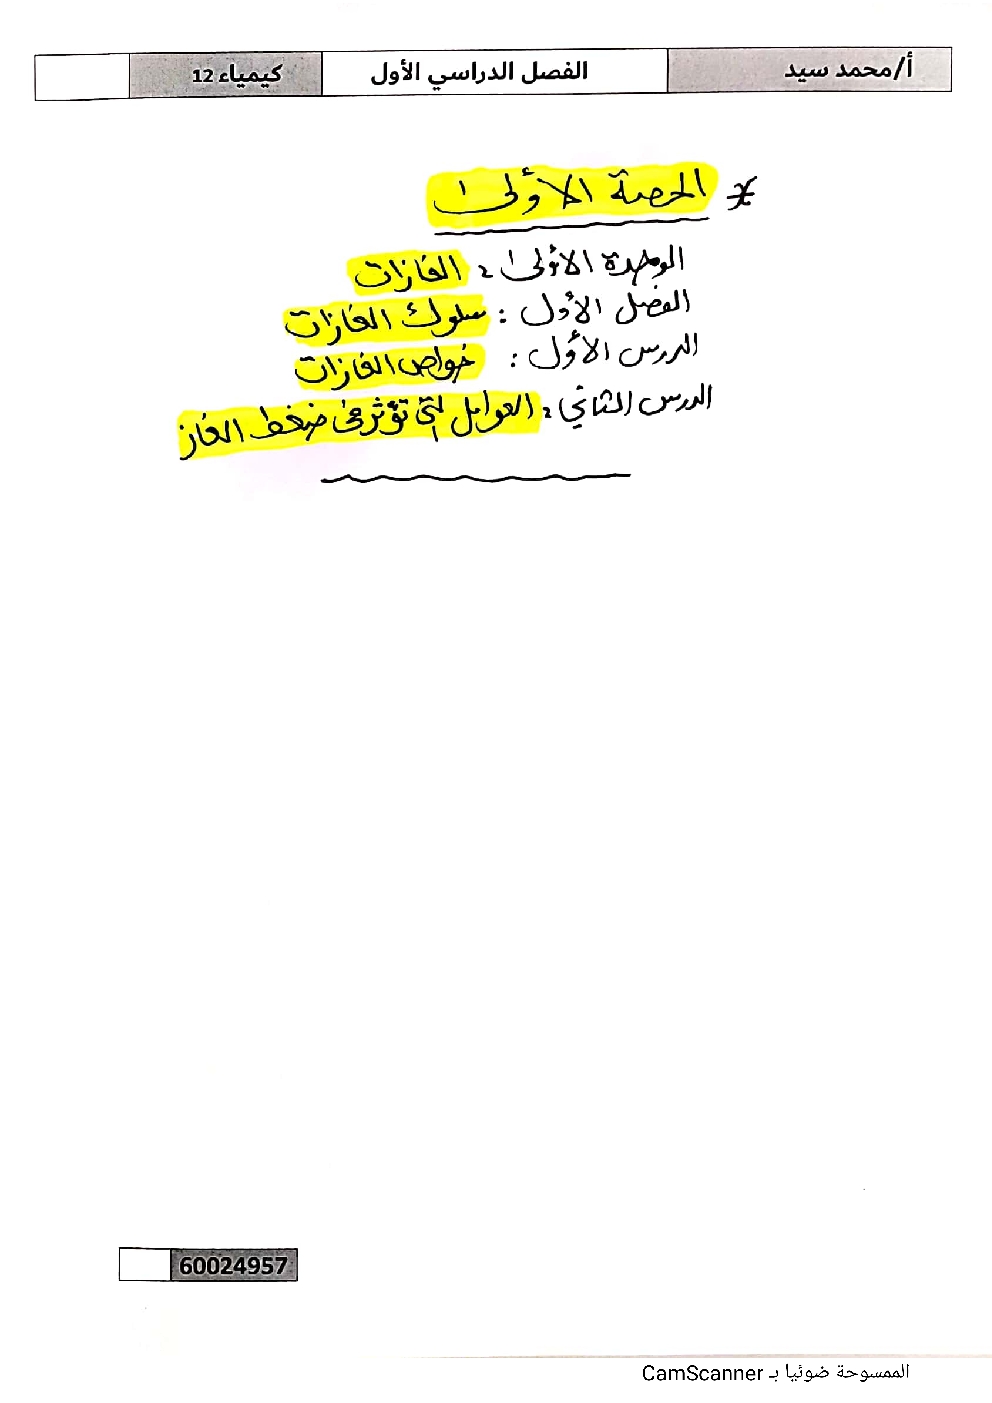 أ/محمد سيد الفصل الدراسي الأول كيمياء 12
* الحصة الأولى
الوحدة الأولى : الغازات
الفصل الأول : سلوك الغازات
الدرس الأول : خواص الغازات
الدرس الثاني : العوامل التي تؤثر في ضغط الغاز
60024957
الممسوحة ضوئيا بـ CamScanner